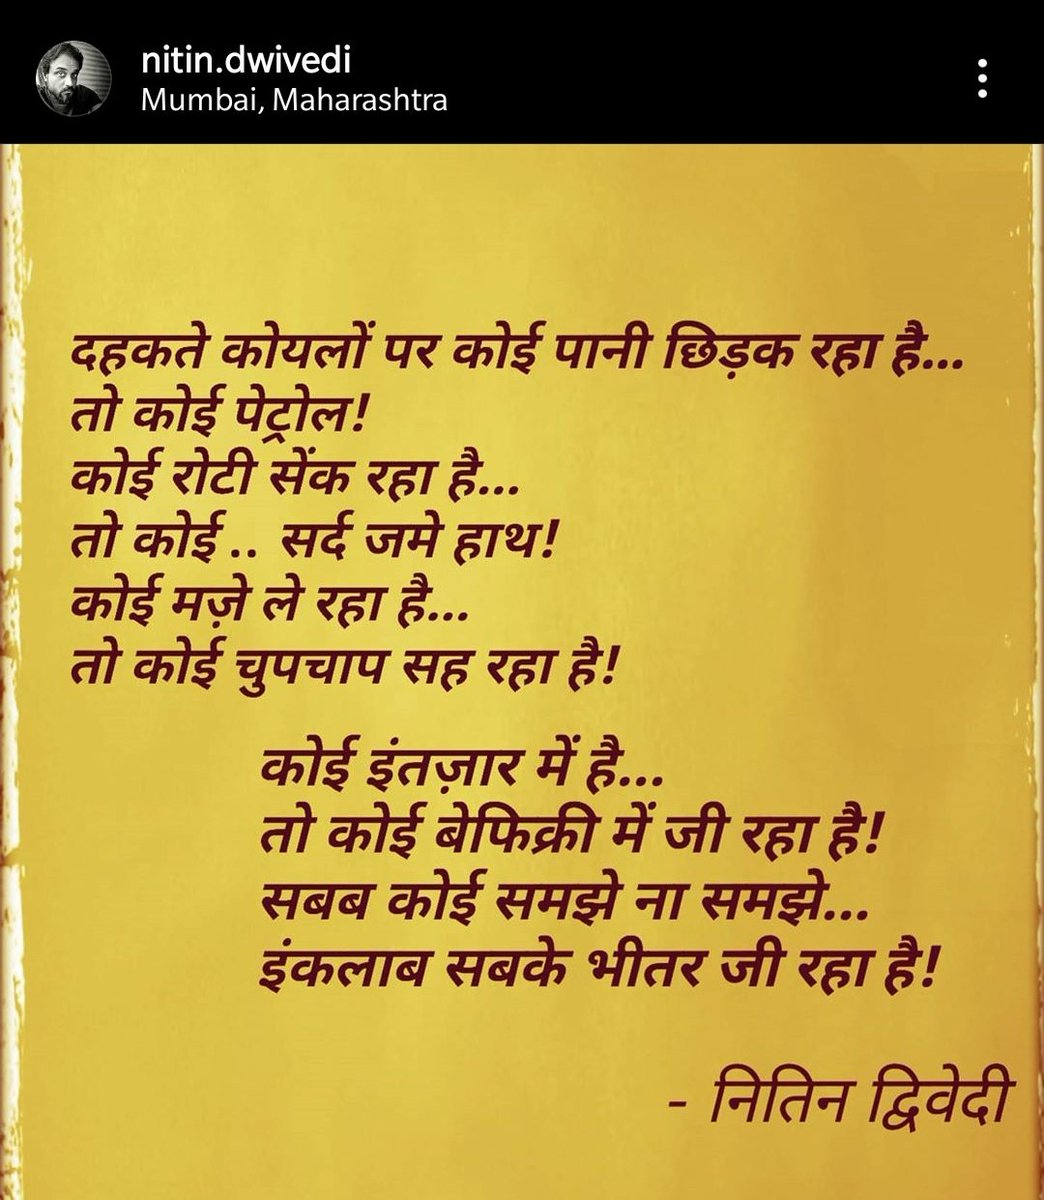 nitin.dwivedi
Mumbai, Maharashtra
दहकते कोयलों पर कोई पानी छिड़क रहा है...
तो कोई पेट्रोल!
कोई रोटी सेंक रहा है...
तो कोई .. सर्द जमे हाथ!
कोई मज़े ले रहा है...
तो कोई चुपचाप सह रहा है!
कोई इंतज़ार में है...
तो कोई बेफिक्री में जी रहा है!
सबब कोई समझे ना समझे...
इंकलाब सबके भीतर जी रहा है!
- नितिन द्विवेदी